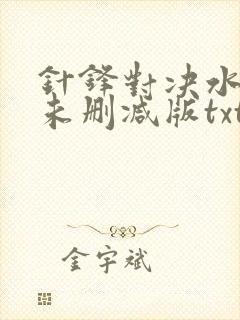 針鋒對決水
未刪減版txt
金宇斌